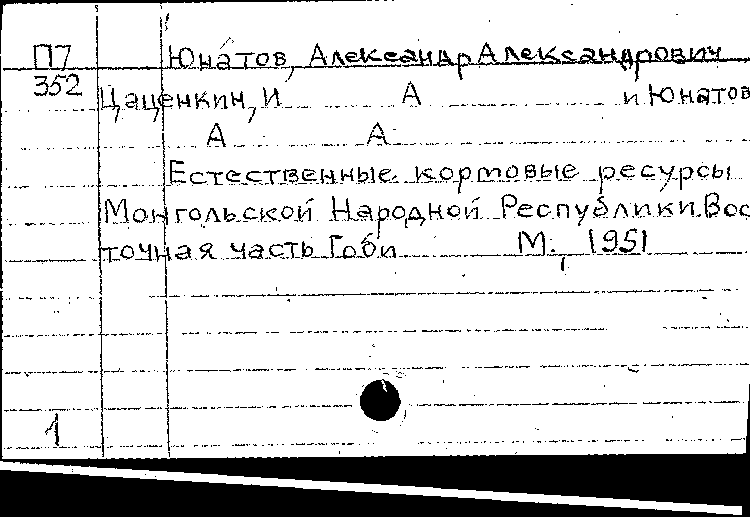 П7 Юнатов, Александр Александрович
352 Цаценкин, И А и Юнатов
А А
Естественные кортовые ресурсы
Монгольской Народной Республики. Вос
точная часть Гоби М., 1951
1